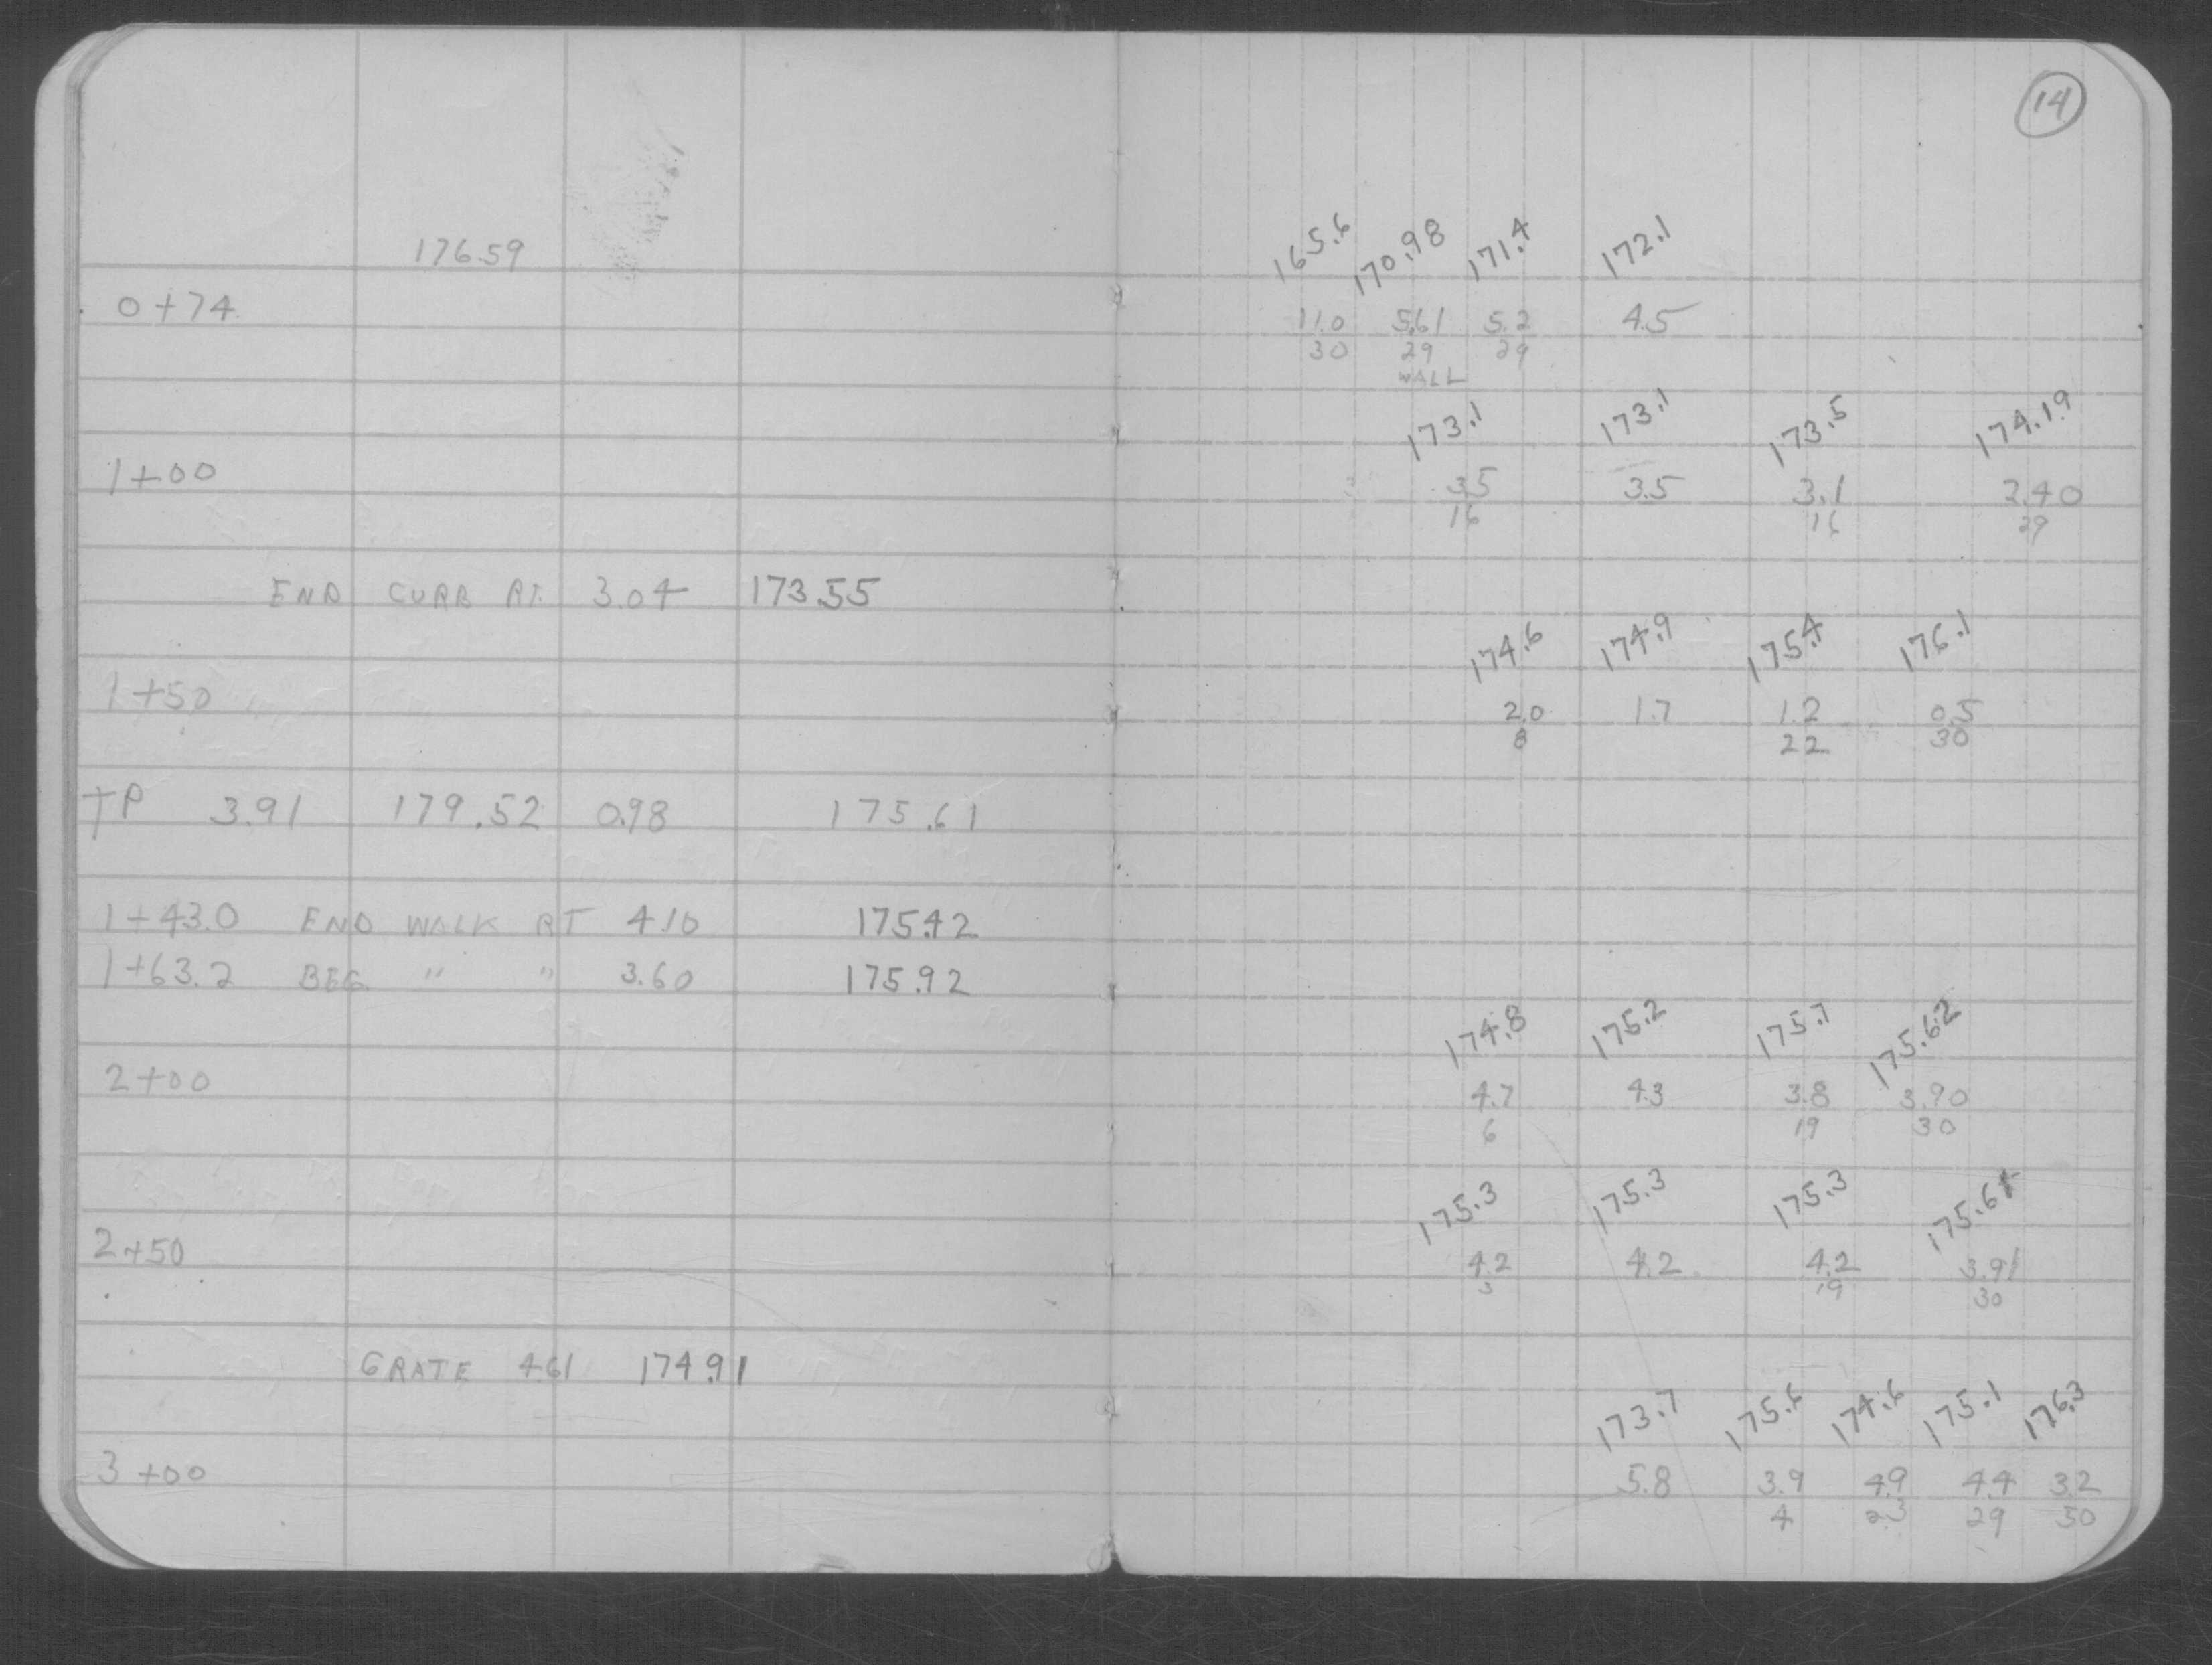 14
176.59 165.6 170.98 171.4 172.1
0+74 11.0 5.61 5.2 4.5
30 29 29
WALL
173.1 173.1 173.5 174.19
1+00 3.5 3.5 3.1 2.40
16 16 29
END CURB RT. 3.04 173.55
174.6 174.9 175.4 176.1
1+50 2.0 1.7 1.2 0.5
8 22 30
TP 3.91 179.52 0.98 175.61
1+43.0 END WALK RT 4.10 175.42
1+63.2 BEG. " " 3.60 175.92
174.8 175.2 175.7 175.62
2+00 4.7 4.3 3.8 3.90
6 19 30
175.3 175.3 175.3 175.61
2+50 4.2 4.2 4.2 3.91
3 19 30
GRATE 4.61 174.91
173.7 175.6 174.6 175.1 176.3
3+00 5.8 3.9 4.9 4.4 3.2
4 23 29 30